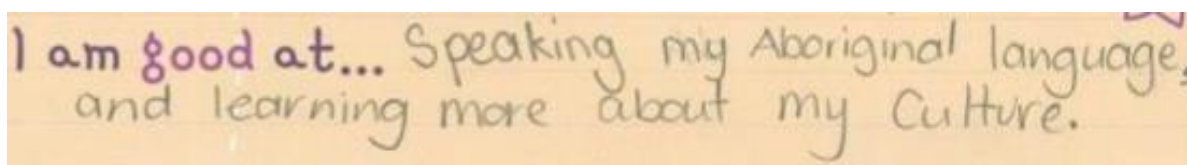 I am good at... Speaking my Aboriginal language,
and learning more about my Culture.